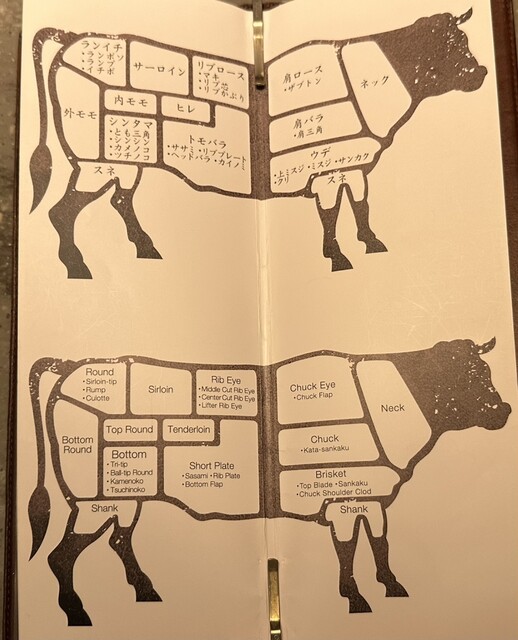 ランイチ
・ランボソ
・ランプ
・イチボ
サーロイン
リブロース
・マキ
・リブ芯
・リブかぶり
肩ロース
・ザブトン
ネック
外モモ
内モモ
ヒレ
シンタマ
・とも三角
・シンシン
・カメノコ
・ツチノコ
トモバラ
・ササミ ・リブプレート
・ヘッドバラ ・カイノミ
肩バラ
・肩三角
ウデ
・上ミスジ ・ミスジ ・サンカク
・クリ
スネ
スネ
Round
• Sirloin-tip
• Rump
• Culotte
Sirloin
Rib Eye
• Middle Cut Rib Eye
• Center Cut Rib Eye
• Lifter Rib Eye
Chuck Eye
• Chuck Flap
Neck
Bottom
Round
Top Round
Tenderloin
Bottom
• Tri-tip
• Ball-tip Round
• Kamenoko
• Tsuchinoko
Short Plate
• Sasami • Rib Plate
• Bottom Flap
Chuck
• Kata-sankaku
Brisket
• Top Blade • Sankaku
• Chuck Shoulder Clod
Shank
Shank